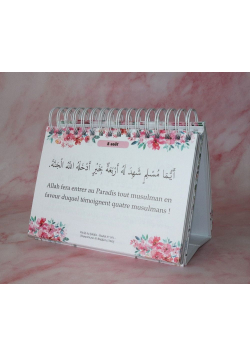 8 août
أَيُّمَا مُسْلِمٍ شَهِدَ لَهُ أَرْبَعَةٌ بِخَيْرٍ أَدْخَلَهُ اللهُ الْجَنَّةَ
Allah fera entrer au Paradis tout musulman en
faveur duquel témoignent quatre musulmans !